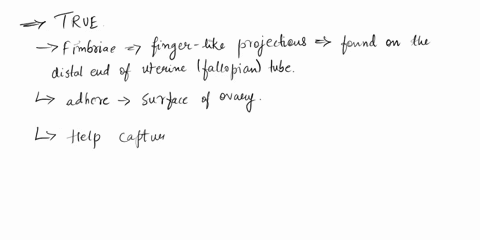 ⇒ TRUE
→ Fimbriae ⇒ finger-like projections ⇒ found on the
distal end of uterine (fallopian) tube.
↳ adhere → surface of ovary.
↳ Help captur